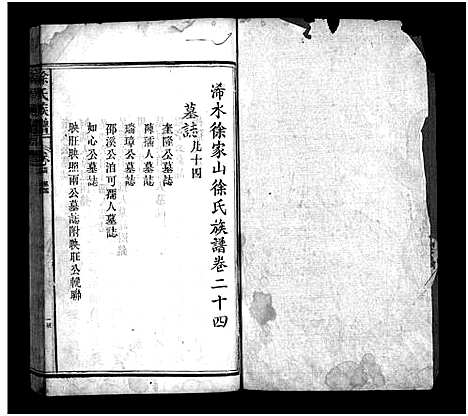 浠水徐家山徐氏族譜卷二十四
墓誌 凡十四
奎隆公墓誌
陳孺人墓誌
瑞璋公墓誌
邵溪公泊可孺人墓誌
如心公墓誌
映旺映照兩公墓誌附映旺公輓聯
徐氏族譜